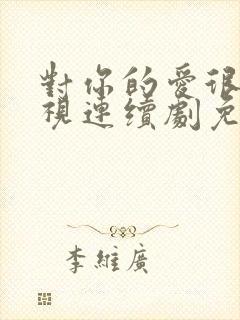 對你的愛很
視連續劇免
李維廣